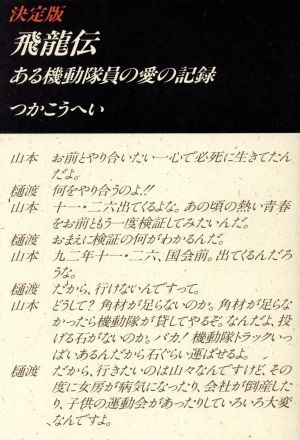 決定版
飛龍伝
ある機動隊員の愛の記録
つかこうへい
山本 お前とやり合いたい一心で必死に生きてたん
だよ。
樋渡 何をやり合うのよ!!
山本 十一・二六出てくるよな。あの頃の熱い青春
をお前ともう一度検証してみたいんだ。
樋渡 おまえに検証の何がわかるんだ。
山本 九二年十一・二六、国会前。出てくるんだろ
うな。
樋渡 だから、行けないんですって。
山本 どうして?角材が足らないのか。角材が足らな
かったら機動隊が貸してやるぞ。なんだよ、投
げる石がないのか。バカ!機動隊トラックいっ
ぱいあるんだから石ぐらい運ばせるよ。
樋渡 だから、行きたいのは山々なんですけど、その
度に女房が病気になったり、会社が倒産した
り、子供の運動会があったりしていろいろ大変
なんですよ。